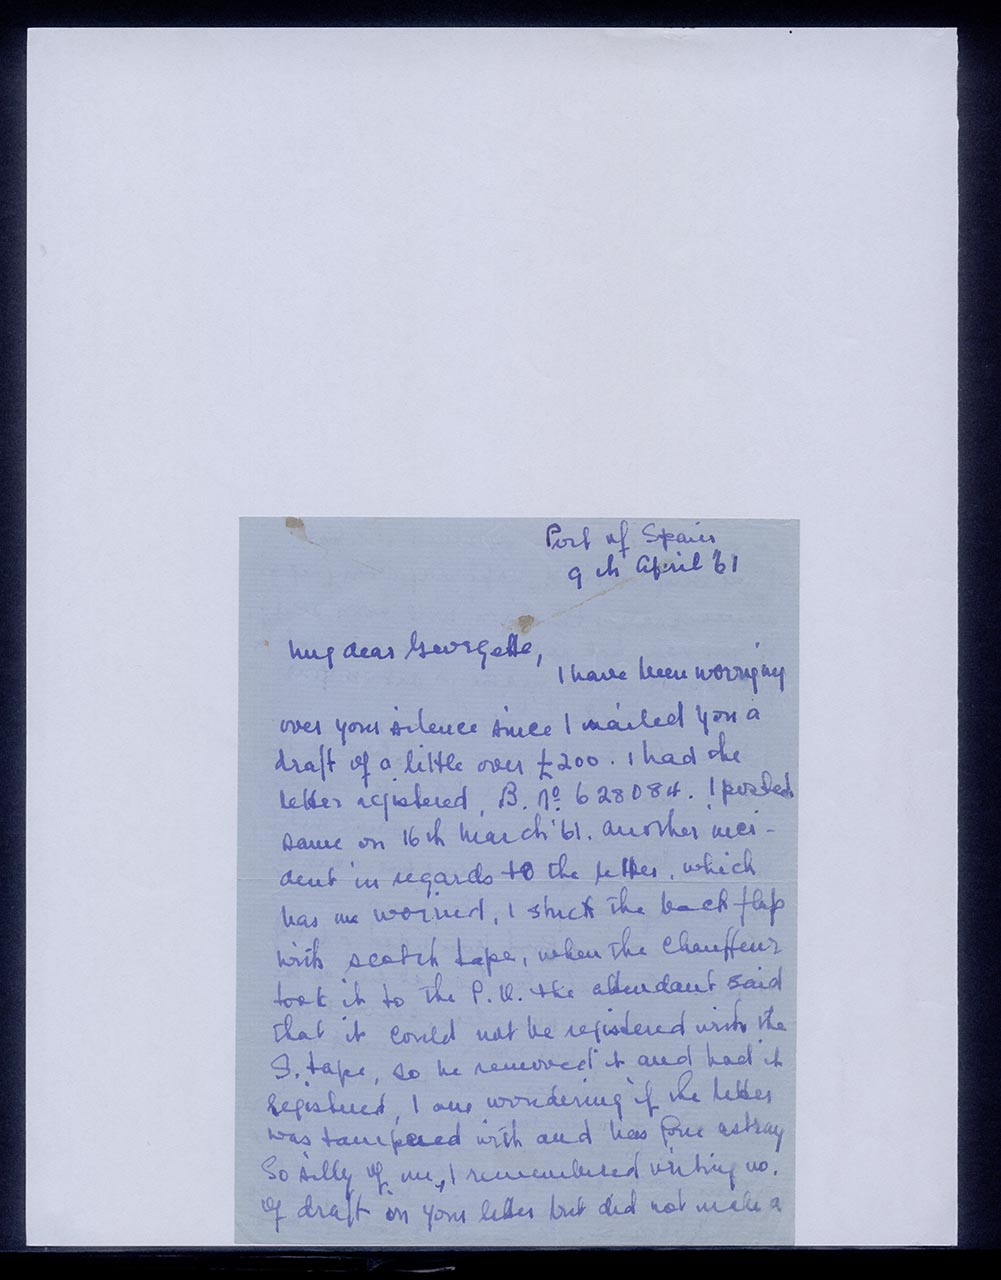 Port of Spain
9th April '61
My dear Georgette,
I have been worrying
over your silence since I mailed you a
draft of a little over £200. I had the
letter registered, B. No. 628084. I posted
same on 16th March '61. Another inci-
dent in regards to the letter, which
has me worried, I stuck the back flap
with scotch tape, when the chauffeur
took it to the P.O. the attendant said
that it could not be registered with the
S. tape, so he removed it and had it
registered, I am wondering if the letter
was tampered with and has gone astray
So silly of me, I remembered writing no.
of draft on your letter but did not make a